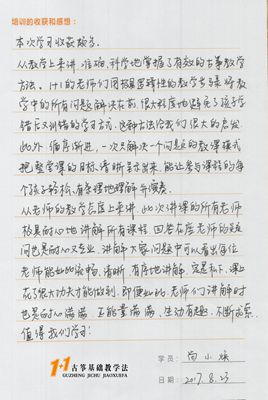 培训的收获和感想:
本次学习收获颇多。
从教学上来讲,准确,科学地掌握了有效的古筝教学
方法。1+1的老师们用极富逻辑性的教学思路将
教学中的所有问题解决在前,很大程度地避免了孩子学
错后又纠错的学习方式,这种方法给我们很大的启发
此外,循序渐进,一次只解决一个问题的教课模式
把整堂课的目标清晰呈出来,能让参与课程的每
个孩子轻松,有条理地理解与演奏。
从老师的教学态度上来讲,此次讲课的所有老师
极具耐心地讲解所有课程,回答在座老师的疑
问也是耐心又专业,讲解大家问题中可以看出每位
老师能如此流畅,清晰,有序地讲解,定是私下,课上
花了很大功夫才能做到,即便如此,老师们讲解时
也是耐心满满,正能量满满,生动有趣,不断
值得我们学习!
1+1 古筝基础教学法
GUZHENG JICHU JIAOXUEFA
学员:
日期:2017.8.23